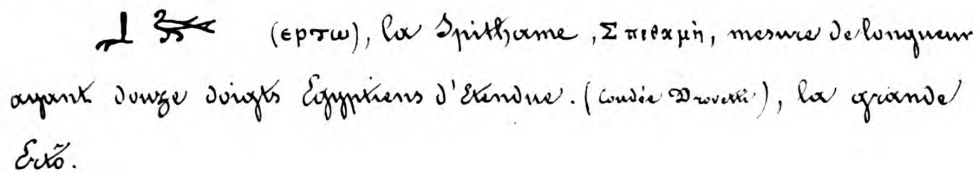 (ερτω), la Spithame, Σπιθαμὴ, mesure de longueur
ayant douze doigts Egyptiens d'Etendue. (Coudée Drovetti), la grande
Ertô.